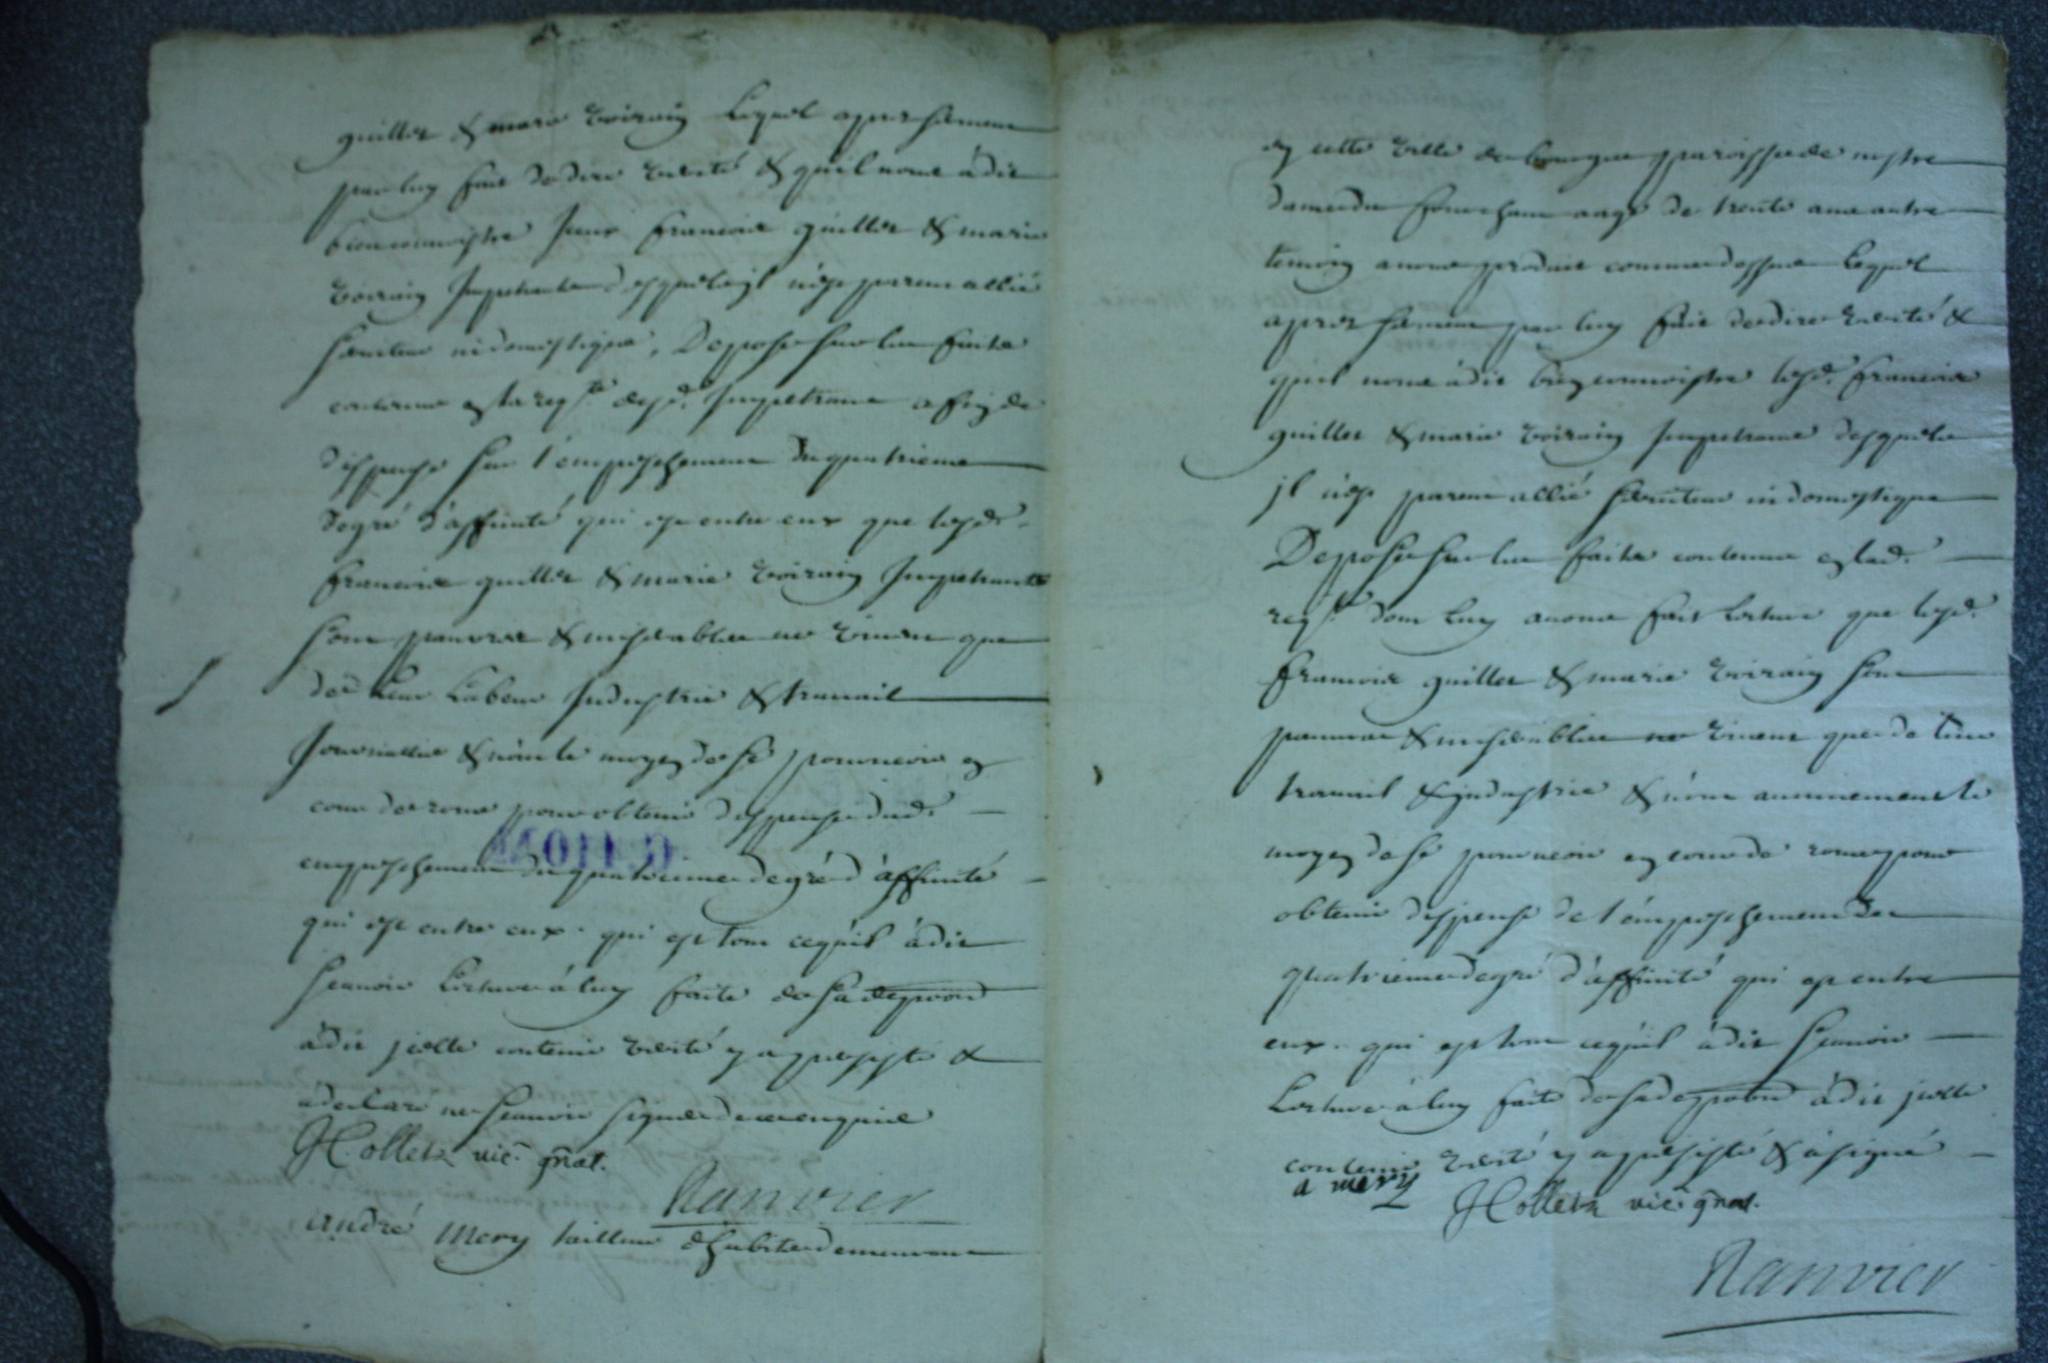 guillet & marie Voirin lequel apres serment
par luy fait de dire verité & qu'il nous à dit
bien connoistre Iceux francois guillet & marie
Voirin Impetrants desquels il n'est parent allié
seruiteur ni domestique, Depose sur les faits
contenus en la reqte. desd. Impetrans a fin de
dispense sur l'empeschement du quatrieme
degré d'affinité qui est entre eux que lesd.
francois guillet & marie Voirin Impetrants
sont pauvres & miserables ne viuent que
de leur labeur Industrie & trauail
Journallier & n'ont le moyen de se pourueoir en
cour de rome pour obtenir dispense dud.
empeschement du quatrieme degré d'affinité
qui est entre eux. qui est tout ce qu'il à dit
scauoir lecture à luy faite de sa depoon
à dit icelle contenir verité y a persisté &
à declaré ne scauoir signer de ce enquis
H. ollet vic. gnal.
Ranvier
André Mery tailleur d'habits demeurant
en cette ville de bourges parroisse de nostre
dame du fourchaut aagé de trente ans autre
temoin a nous produit comme dessus lequel
apres serment par luy fait de dire verité &
quil nous à dit bien connoistre lesd. francois
guillet & marie Voirin Impetrans desquels
il n'est parent allié seruiteur ni domestique
Depose sur les faits contenus en lad.
reqte. dont luy auons fait lecture que lesd.
francois guillet & marie Voirin sont
pauures & miserables ne viuent que de leur
trauail & industrie & n'ont aucunement le
moyen de se pourueoir en cour de rome pour
obtenir dispense de l'empeschement du
quatrieme degré d'affinité qui est entre
eux. qui est tout ce qu'il à dit scauoir
lecture à luy faite de sa depoon à dit icelle
contenir verité y a persisté & à signé
a mery
H. ollet vic. gnal.
Ranvier